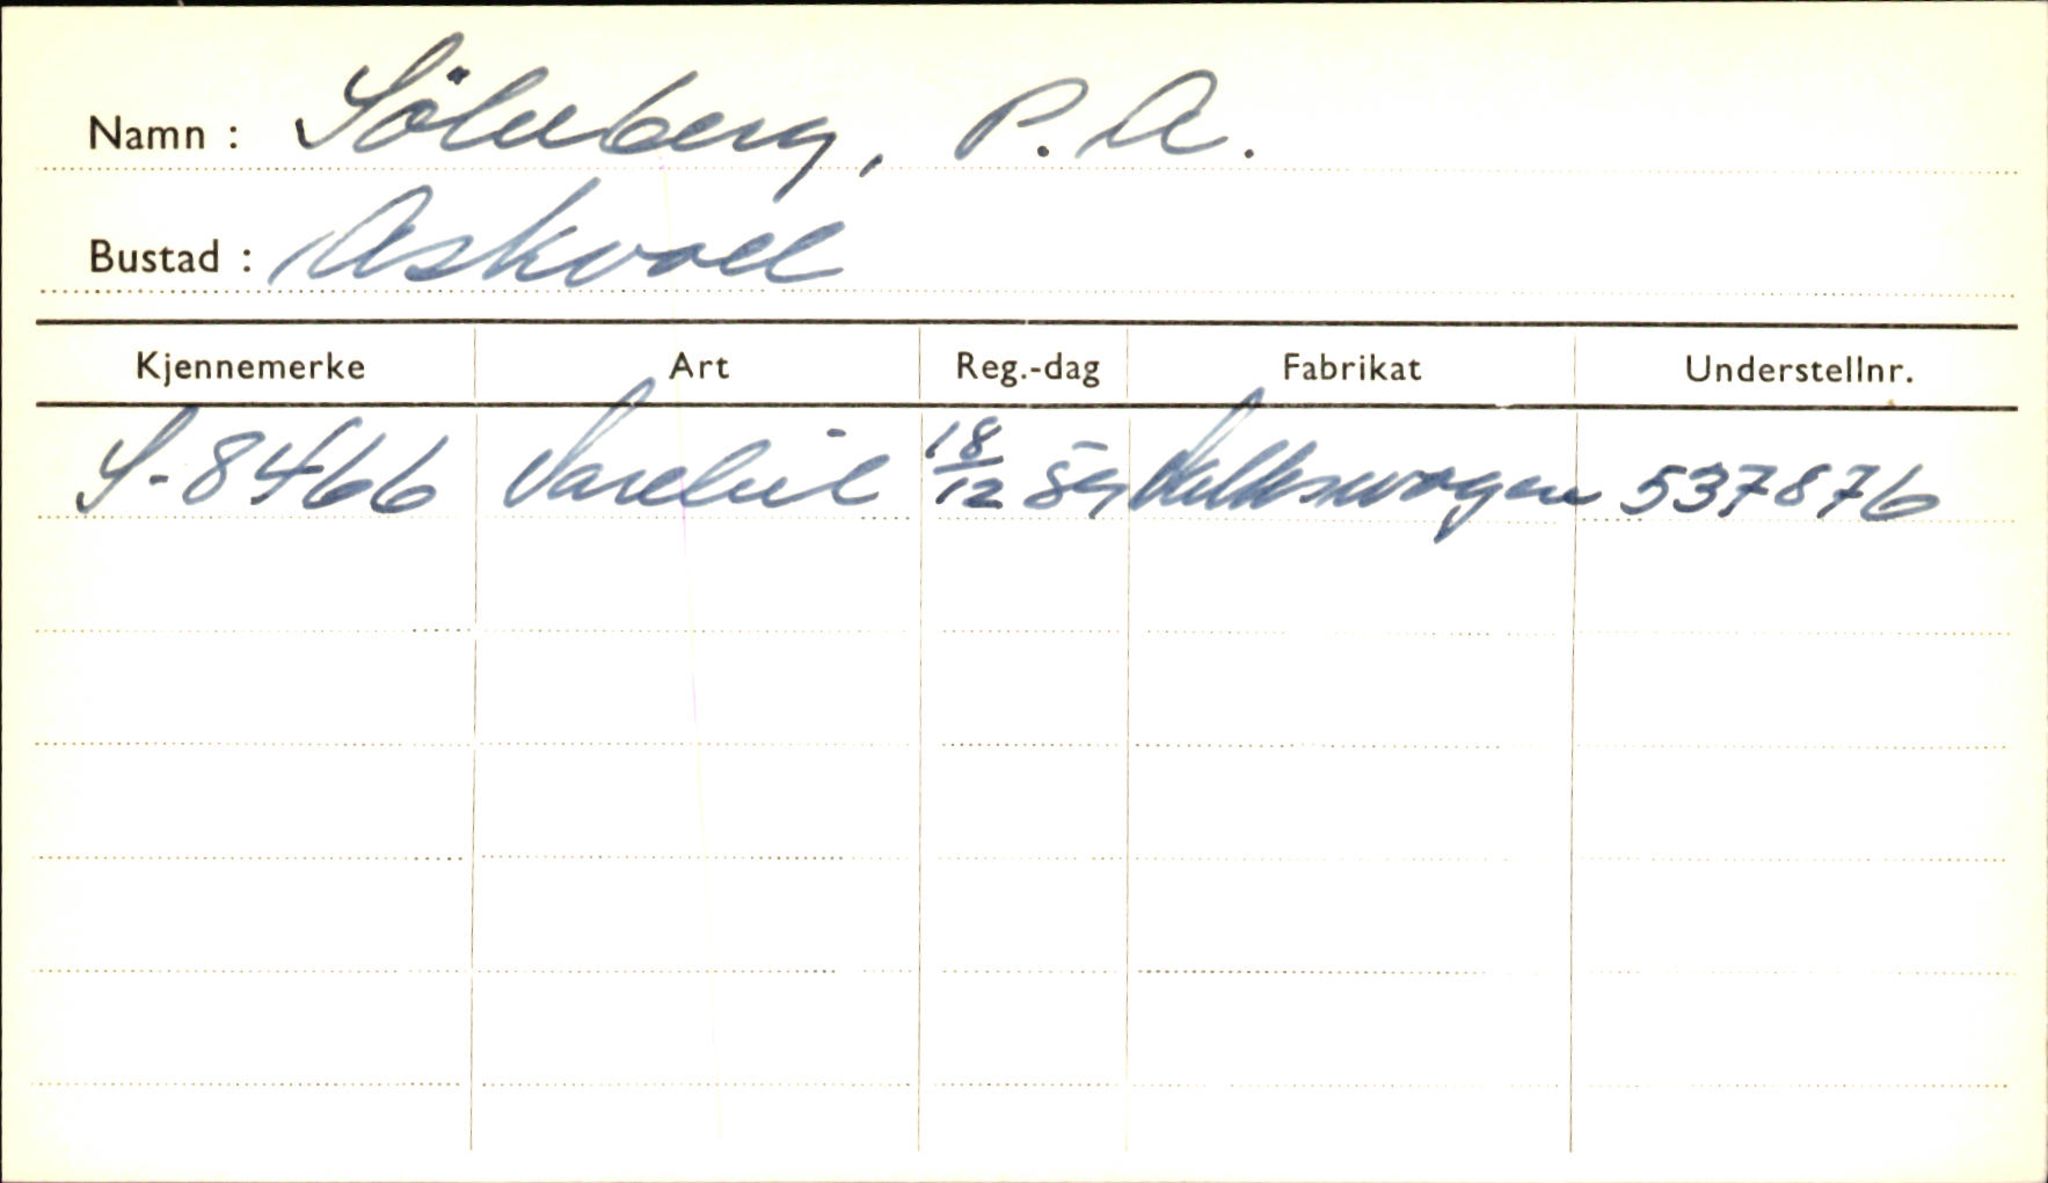 Namn : Sölvberg, P. A.
Bustad : Askvoll
Kjennemerke Art Reg.-dag Fabrikat Understellnr.
S-8466 Varebil 18/12 59 Volkswagen 537876